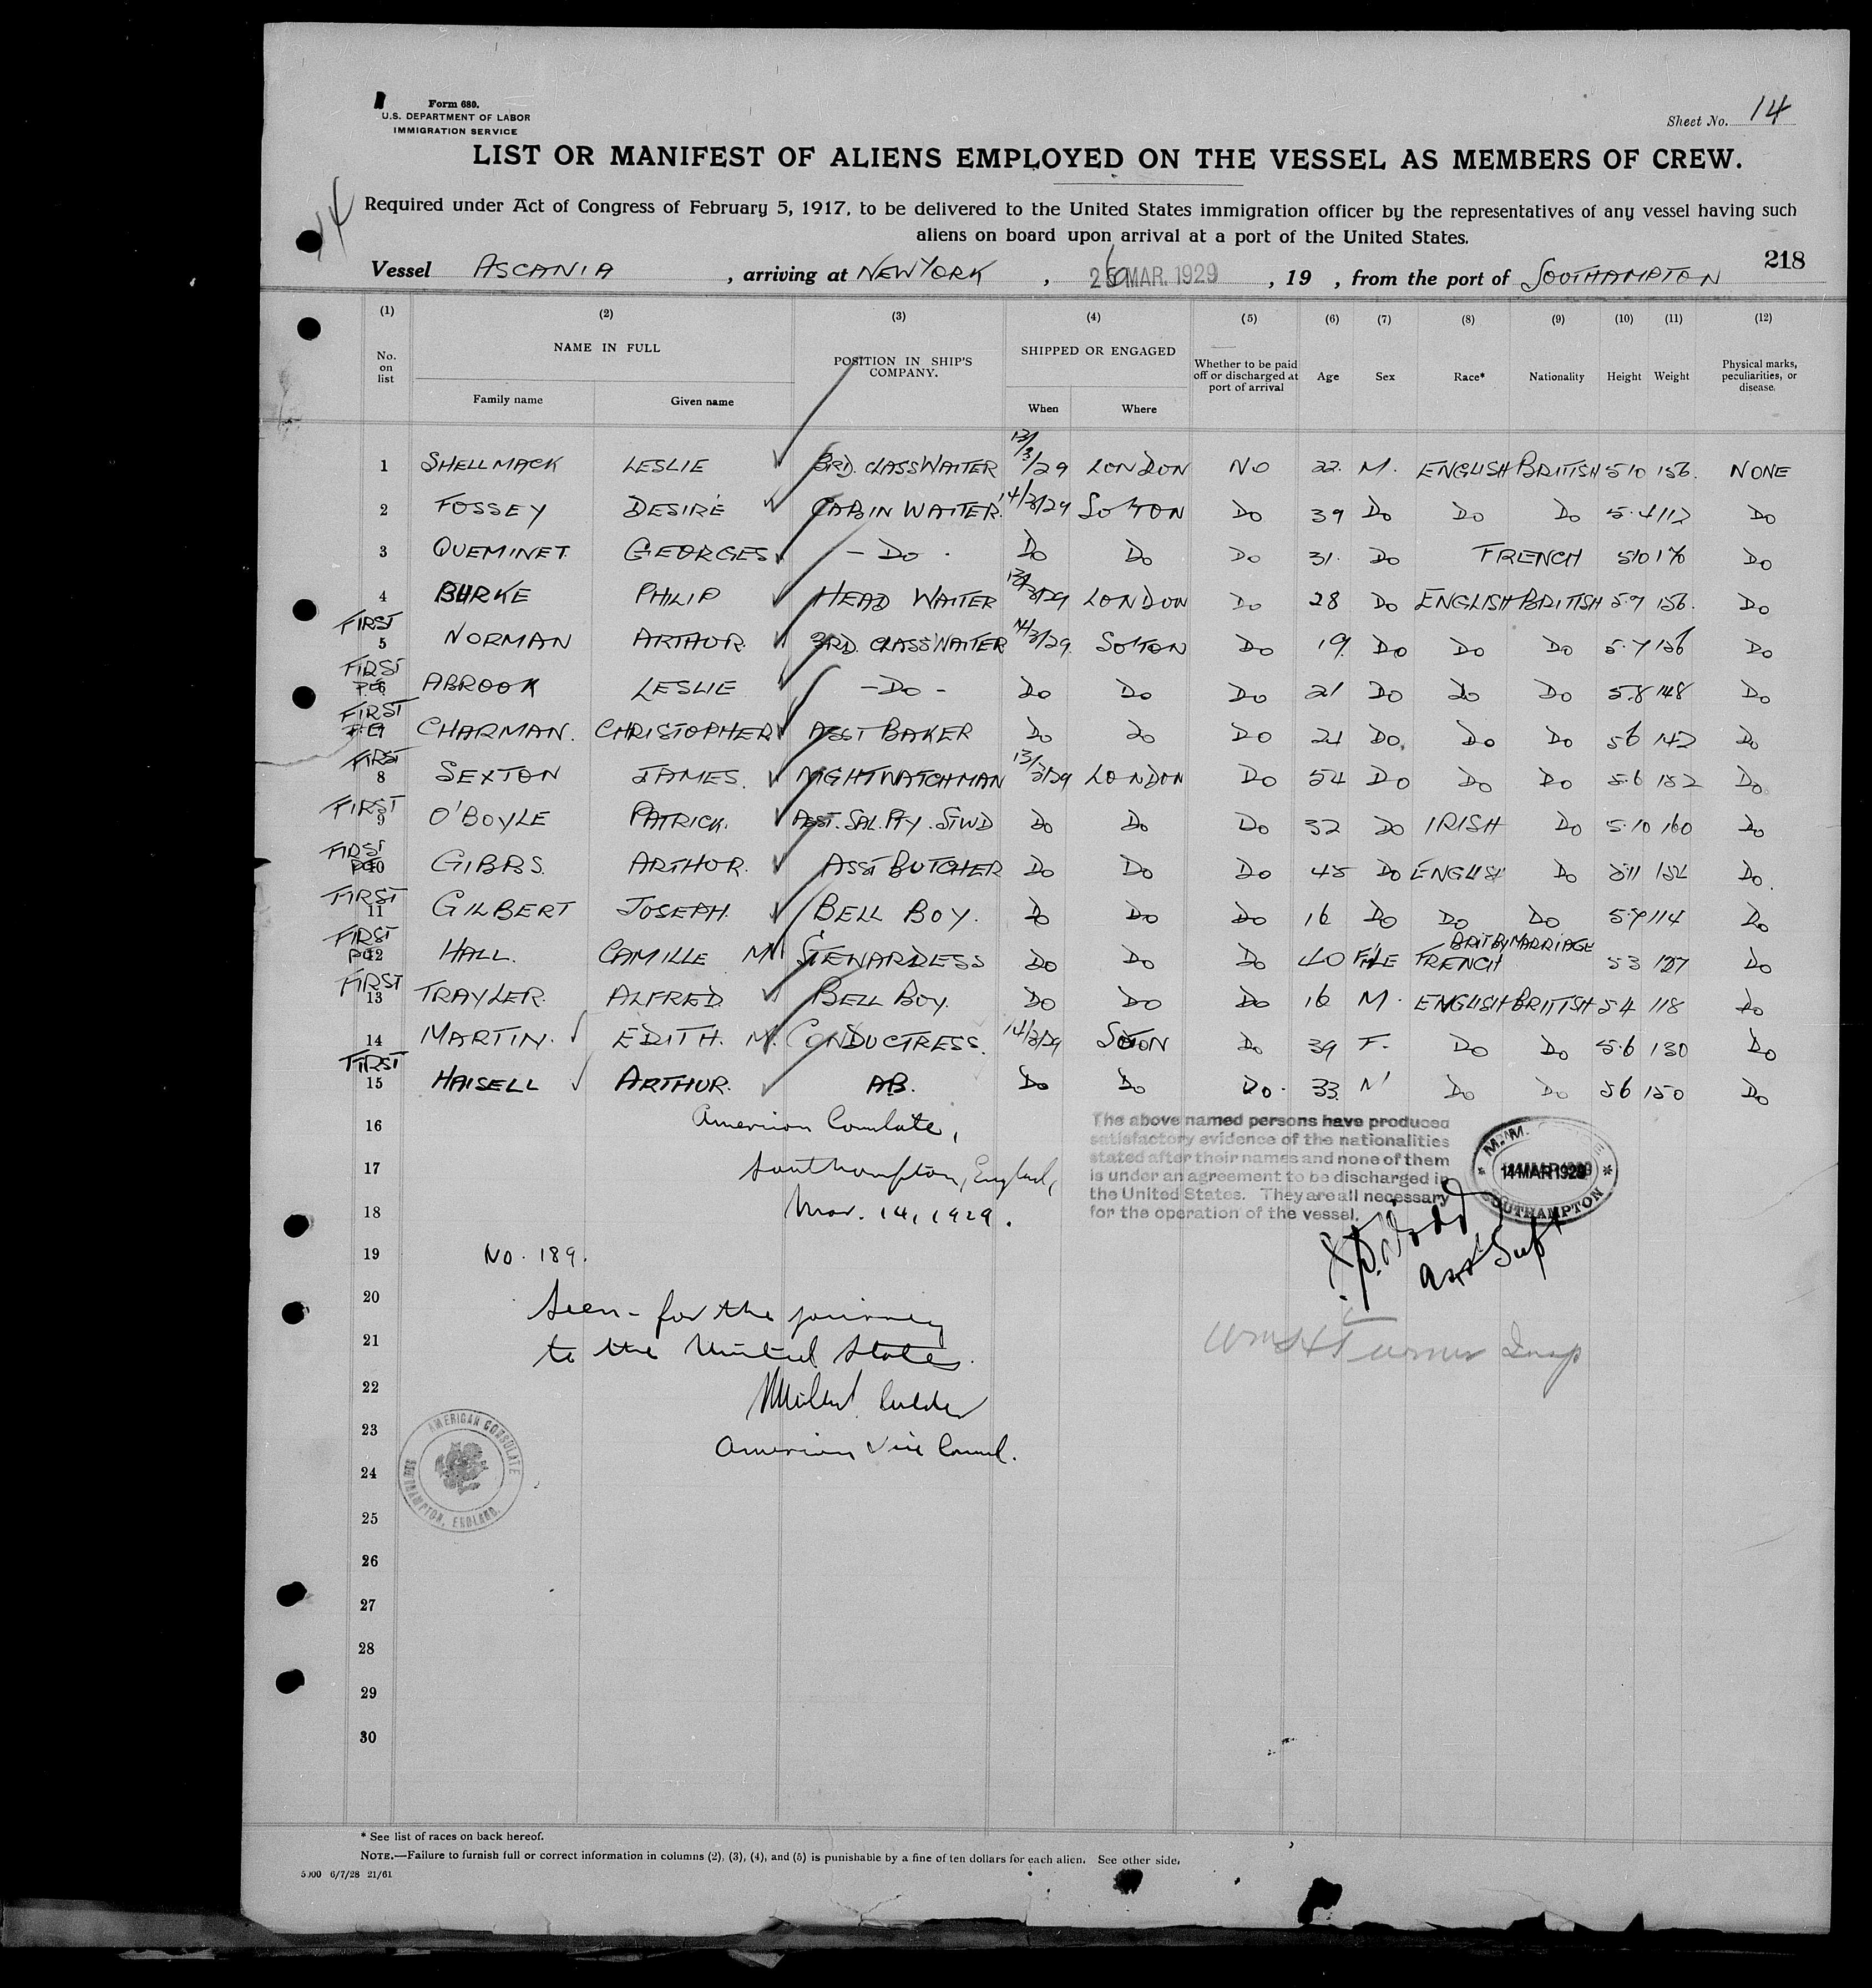 Form 680.
U.S. DEPARTMENT OF LABOR
IMMIGRATION SERVICE
Sheet No. 14
LIST OR MANIFEST OF ALIENS EMPLOYED ON THE VESSEL AS MEMBERS OF CREW.
14
Required under Act of Congress of February 5, 1917, to be delivered to the United States immigration officer by the representatives of any vessel having such
aliens on board upon arrival at a port of the United States.
218
Vessel ASCANIA , arriving at NEW YORK , 26 MAR. 1929 , 19 , from the port of SOUTHAMPTON
(1) (2) (3) (4) (5) (6) (7) (8) (9) (10) (11) (12)
No. on list NAME IN FULL Family name Given name POSITION IN SHIP'S COMPANY. SHIPPED OR ENGAGED When Where Whether to be paid off or discharged at port of arrival Age Sex Race* Nationality Height Weight Physical marks, peculiarities, or disease.
1 SHELLMACK LESLIE 3RD. CLASS WAITER 13/3/29 LONDON NO 22. M. ENGLISH BRITISH 5 10 156. NONE
2 FOSSEY DESIRÉ CABIN WAITER 14/3/29 SO'TON DO 39 DO DO DO 5.4 112 DO
3 QUEMINET. GEORGES - DO - DO DO DO 31. DO FRENCH 5 10 170 DO
4 BURKE PHILIP HEAD WAITER 13/3/29 LONDON DO 28 DO ENGLISH BRITISH 5.9 156. DO
FIRST
5 NORMAN ARTHUR. 3RD. CLASS WAITER 14/3/29. SO'TON DO 19. DO DO DO 5.7 126 DO
FIRST
6 ABROOK LESLIE - DO - DO DO DO 21 DO DO DO 5.8 148 DO
FIRST
7 CHARMAN. CHRISTOPHER ASST BAKER DO DO DO 21 DO. DO DO 5 6 142 DO
FIRST
8 SEXTON JAMES. NIGHTWATCHMAN 13/3/29 LONDON DO 54 DO DO DO 5.6 152 DO.
FIRST
9 O'BOYLE PATRICK. ASST. SAL. PTY. STWD DO DO DO 32 DO IRISH DO 5.10 160 DO
FIRST
10 GIBBS. ARTHUR. ASST BUTCHER DO DO DO 45 DO ENGLISH DO 5 11 DO.
FIRST
11 GILBERT JOSEPH. BELL BOY. DO DO DO 16 DO DO DO 5.7 114 DO
FIRST
12 HALL. CAMILLE M. STEWARDESS DO DO DO 40 F'LE FRENCH BRIT BY MARRIAGE 5 3 127 DO
FIRST
13 TRAYLER. ALFRED BELL BOY. DO DO DO 16 M. ENGLISH BRITISH 5 4 118 DO
14 MARTIN. EDITH. M. CONDUCTRESS. 14/3/29 SOTON DO 39 F. DO DO 5.6 130 DO
FIRST
15 HAISELL ARTHUR. AB. DO DO DO. 33. M DO DO 5 6 150 DO
16 American Consulate,
17 Southampton, England,
18 Mar. 14, 1929.
The above named persons have produced
satisfactory evidence of the nationalities
stated after their names and none of them
is under an agreement to be discharged in
the United States. They are all necessary
for the operation of the vessel.
M.M.
14 MAR 1929
SOUTHAMPTON
Asst Supt
19 No. 189.
20 Seen - for the journey
21 to the United States.
Wm H Turner Insp
22
23 American Vice Consul.
AMERICAN CONSULATE
SOUTHAMPTON, ENGLAND.
24
25
26
27
28
29
30
* See list of races on back hereof.
NOTE.—Failure to furnish full or correct information in columns (2), (3), (4), and (5) is punishable by a fine of ten dollars for each alien. See other side.
5000 6/7/28 21/61